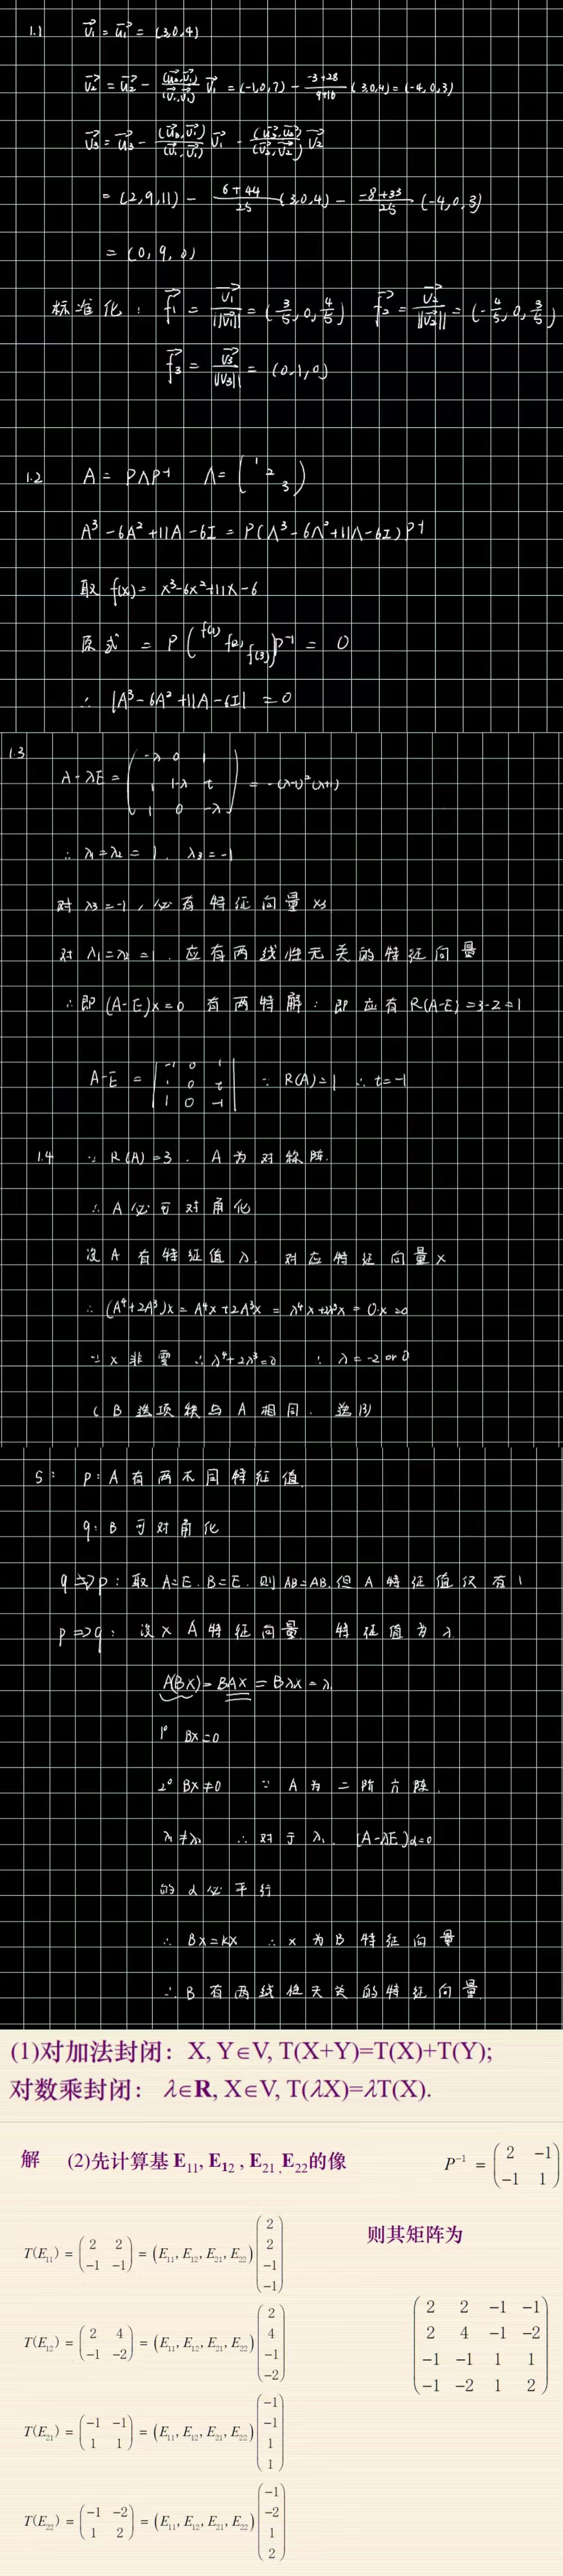 1.1 v₁ = u₁ = (3,0,4)
v₂ = u₂ - (u₂,v₁)/(v₁,v₁) v₁ = (-1,0,7) - (-3+28)/(9+16) (3,0,4) = (-4,0,3)
v₃ = u₃ - (u₃,v₁)/(v₁,v₁) v₁ - (u₃,v₂)/(v₂,v₂) v₂
= (2,9,11) - (6+44)/25 (3,0,4) - (-8+33)/25 (-4,0,3)
= (0,9,0)
标准化: f₁ = v₁/||v₁|| = (3/5,0,4/5) f₂ = v₂/||v₂|| = (-4/5,0,3/5)
f₃ = v₃/||v₃|| = (0,1,0)
1.2 A = PΛP⁻¹ Λ = (1 2 3)
A³-6A²+11A-6I = P(Λ³-6Λ²+11Λ-6I)P⁻¹
取 f(x) = x³-6x²+11x-6
原式 = P(f(1) f(2) f(3))P⁻¹ = 0
∴ |A³-6A²+11A-6I| = 0
1.3
A-λE = (-λ 0 1
1 1-λ t
1 0 -λ) = -(λ-1)²(λ+1)
∴ λ₁=λ₂=1. λ₃=-1
对 λ₃=-1, 必有特征向量 x₃
对 λ₁=λ₂=1. 应有两线性无关的特征向量
∴ 即 (A-E)x=0 有两特解: 即应有 R(A-E)=3-2=1
A-E = |-1 0 1
1 0 t
1 0 -1| ∵ R(A)=1 ∴ t=-1
1.4 ∵ R(A)=3. A为对称阵.
∴ A必可对角化
设A有特征值λ. 对应特征向量x
∴ (A⁴+2A³)x = A⁴x+2A³x = λ⁴x+2λ³x = 0·x=0
∵ x非零 ∴ λ⁴+2λ³=0 ∴ λ=-2 or 0
(B选项秩与A相同. 选B)
5: P: A有两不同特征值
q: B可对角化
q⇏p: 取A=E. B=E. 则AB=AB. 但A特征值仅有1
p⇒q: 设x A特征向量. 特征值为λ
A(BX) = BAX = Bλx = λ
1° Bx=0
2° BX≠0 ∵ A为二阶方阵.
λ₁≠λ₂ ∴ 对于λ. [A-λE]α=0
的α必平行
∴ BX=kX ∴ x为B特征向量
∴ B有两线性无关的特征向量.
(1)对加法封闭: X, Y∈V, T(X+Y)=T(X)+T(Y);
对数乘封闭: λ∈R, X∈V, T(λX)=λT(X).
解 (2)先计算基 E₁₁, E₁₂ , E₂₁ ,E₂₂的像 P⁻¹ = (2 -1
-1 1)
则其矩阵为
T(E₁₁) = (2 2
-1 -1) = (E₁₁, E₁₂, E₂₁, E₂₂) (2
2
-1
-1)
(2 2 -1 -1
2 4 -1 -2
-1 -1 1 1
-1 -2 1 2)
T(E₁₂) = (2 4
-1 -2) = (E₁₁, E₁₂, E₂₁, E₂₂) (2
4
-1
-2)
T(E₂₁) = (-1 -1
1 1) = (E₁₁, E₁₂, E₂₁, E₂₂) (-1
-1
1
1)
T(E₂₂) = (-1 -2
1 2) = (E₁₁, E₁₂, E₂₁, E₂₂) (-1
-2
1
2)